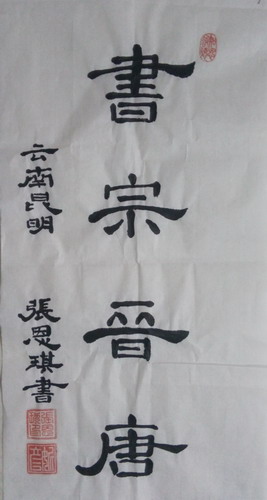 書宗晉唐
云南昆明 張恩琪書